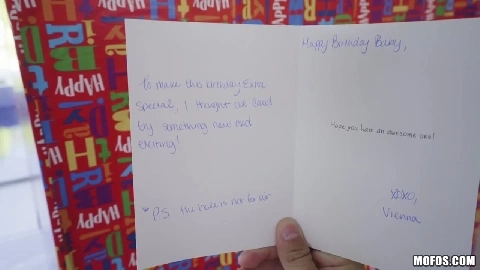 To make this birthday Extra
special, I thought we could
by something new and
exciting!
*PS the lube is not for car
Happy Birthday Baby,
Hope you have an awesome one!
XOXO,
Vienna
HAPPY
HAPPY
HAPPY
HAPPY
MOFOS.COM